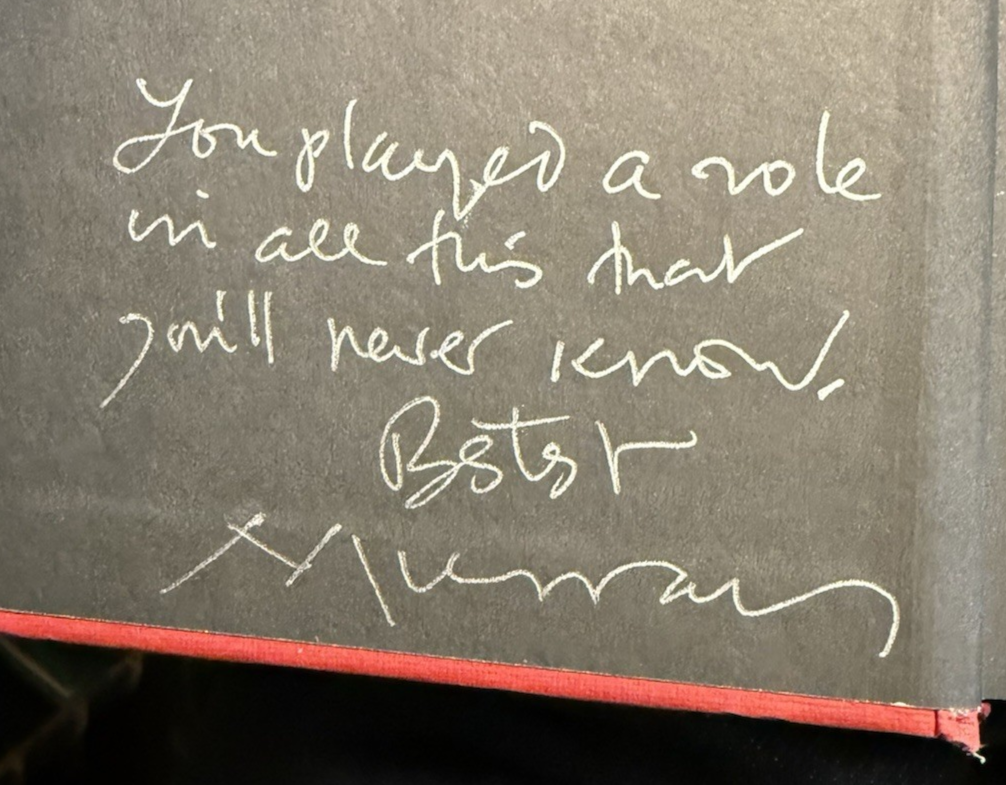 You played a role
in all this that
you'll never know.
Bstst
Murray